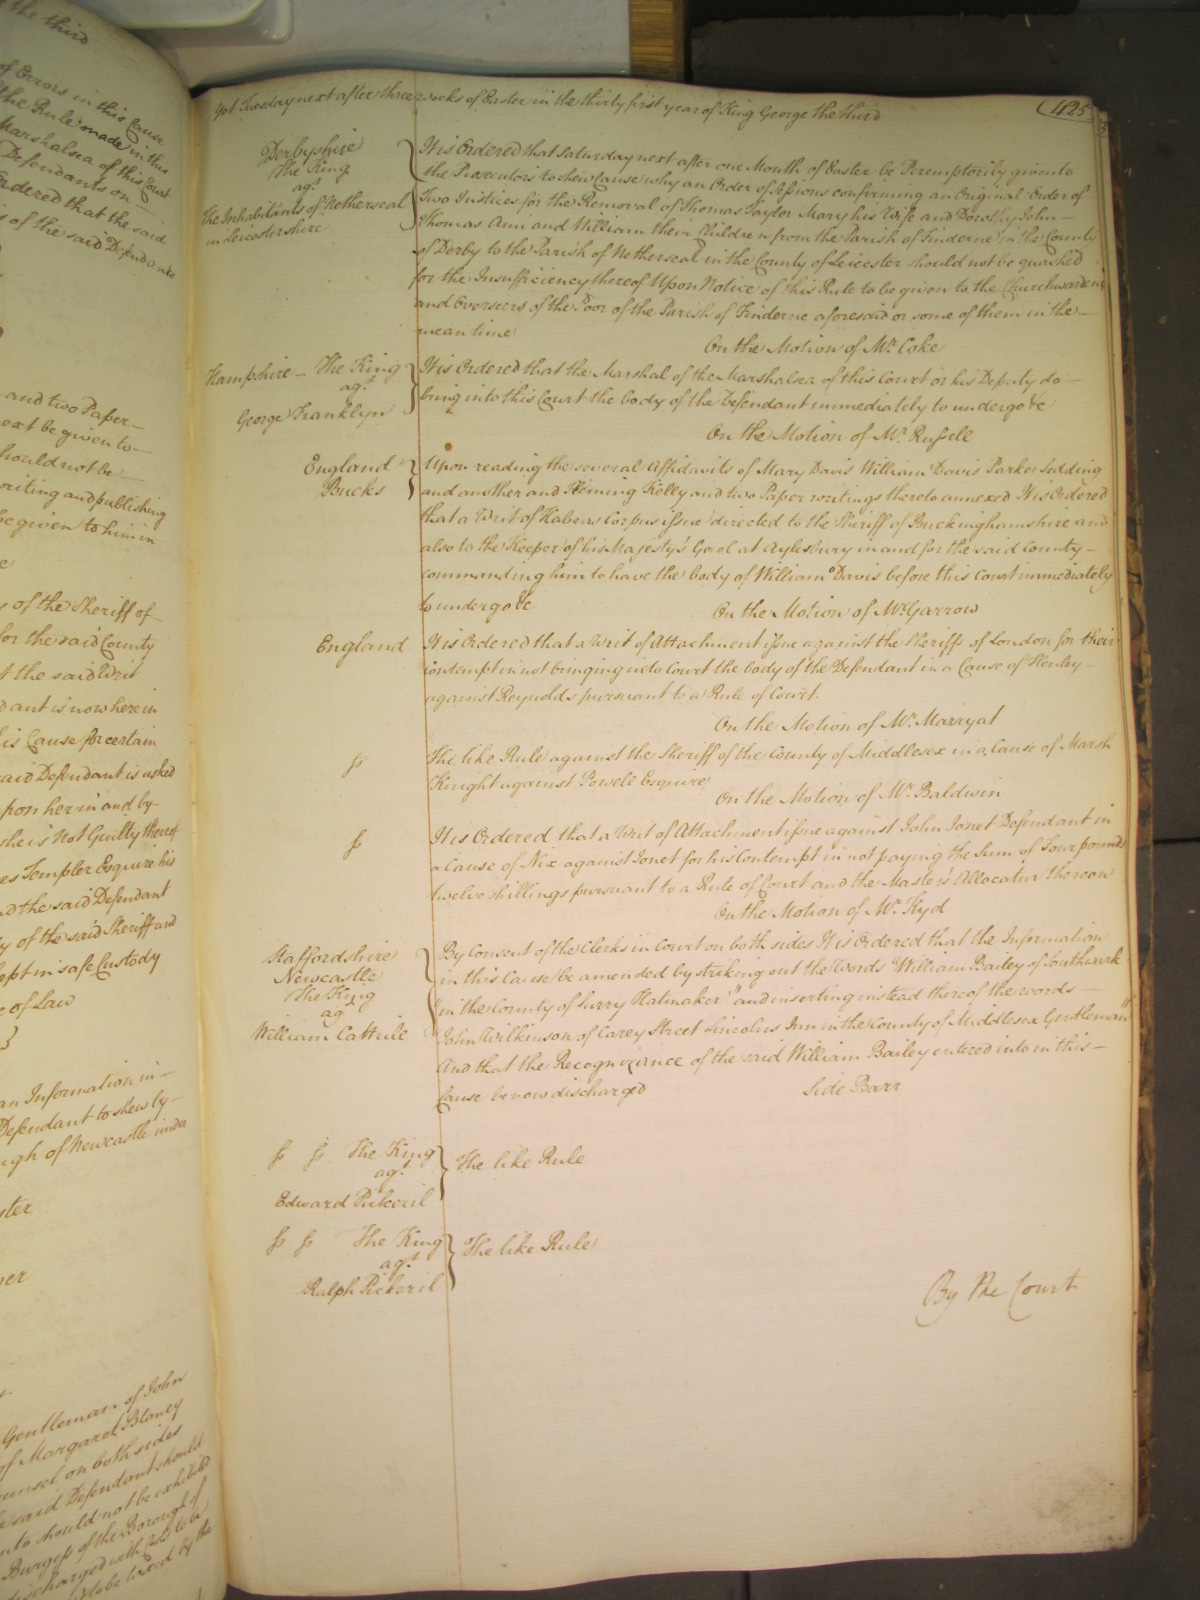 the third
of Errors in this Cause
the Rule made in this
Marshalsea of this Court
Defendants on
Ordered that the said
of the said Defendants
and two Paper
ext be given to
hould not be
writing and publishing
be given to him in
of the Sheriff of
for the said County
t the said Writ
dant is now here in
is Cause for certain
said Defendant is asked
pon her in and by
she is Not Guilty thereof
es Templer Esquire his
nd the said Defendant
y of the said Sheriff and
kept in safe Custody
e of Law
an Information in
Defendant to shew by
ugh of Newcastle under
Gentleman of John
of Margaret Blaney
ounsel on both sides
e said Defendant should
nto should not be exhibited
Burgess of the Borough of
discharged with Costs to be
to be taxed by the
Yet Tuesday next after three weeks of Easter in the thirty first year of King George the third
425
Derbyshire
The King
agt.
The Inhabitants of Netherseal
in Leicestershire
It is Ordered that Saturday next after one Month of Easter be Peremptorily given to
the Prosecutors to shew Cause why an Order of Sessions confirming an Original Order of
Two Justices for the Removal of Thomas Taylor Mary his Wife and Dorothy John
Thomas Ann and William their Children from the Parish of Finderne in the County
of Derby to the Parish of Netherseal in the County of Leicester should not be quashed
for the Insufficiency thereof Upon Notice of this Rule to be given to the Churchwardens
and Overseers of the Poor of the Parish of Finderne aforesaid or some of them in the
mean time
On the Motion of Mr. Coke
Hampshire - The King
agt.
George Franklyn
It is Ordered that the Marshal of the Marshalsea of this Court or his Deputy do
bring into this Court the body of the Defendant immediately to undergo &c
On the Motion of Mr. Russell
England
Bucks
Upon reading the several Affidavits of Mary Davis William Davis Parker Sedding
and another and Fleming Kelly and two Paper writings thereto annexed It is Ordered
that a Writ of Habeas Corpus issue directed to the Sheriff of Buckinghamshire and
also to the Keeper of his Majesty's Gaol at Aylesbury in and for the said County
commanding him to have the body of William Davis before this Court immediately
to undergo &c
On the Motion of Mr. Garrow
England
It is Ordered that a Writ of Attachment issue against the Sheriff of London for their
contempt in not bringing into Court the body of the Defendant in a Cause of Henley
against Reynolds pursuant to a Rule of Court.
On the Motion of Mr. Marryat
ss
The like Rule against the Sheriff of the County of Middlesex in a Cause of Marsh
Knight against Powell Esquire
On the Motion of Mr. Baldwin
ss
It is Ordered that a Writ of Attachment issue against John Jonet Defendant in
a Cause of Nix against Jonet for his Contempt in not paying the Sum of Four pounds
twelve shillings pursuant to a Rule of Court and the Master's Allocatur thereon
On the Motion of Mr. Kyd
Staffordshire
Newcastle
The King
agt
William Cattrile
By Consent of the Clerks in Court on both sides It is Ordered that the Information
in this Cause be amended by striking out the Words "William Bailey of Southwark
in the County of Surry Hatmaker" and inserting instead thereof the words
John Wilkinson of Carey Street Lincolns Inn in the County of Middlesex Gentleman"
And that the Recognizance of the said William Bailey entered into in this
Cause be now discharged
Side Barr
ss ss The King
agt.
Edward Pickeril
The like Rule
ss ss The King
agt.
Ralph Pickeril
The like Rule
By the Court